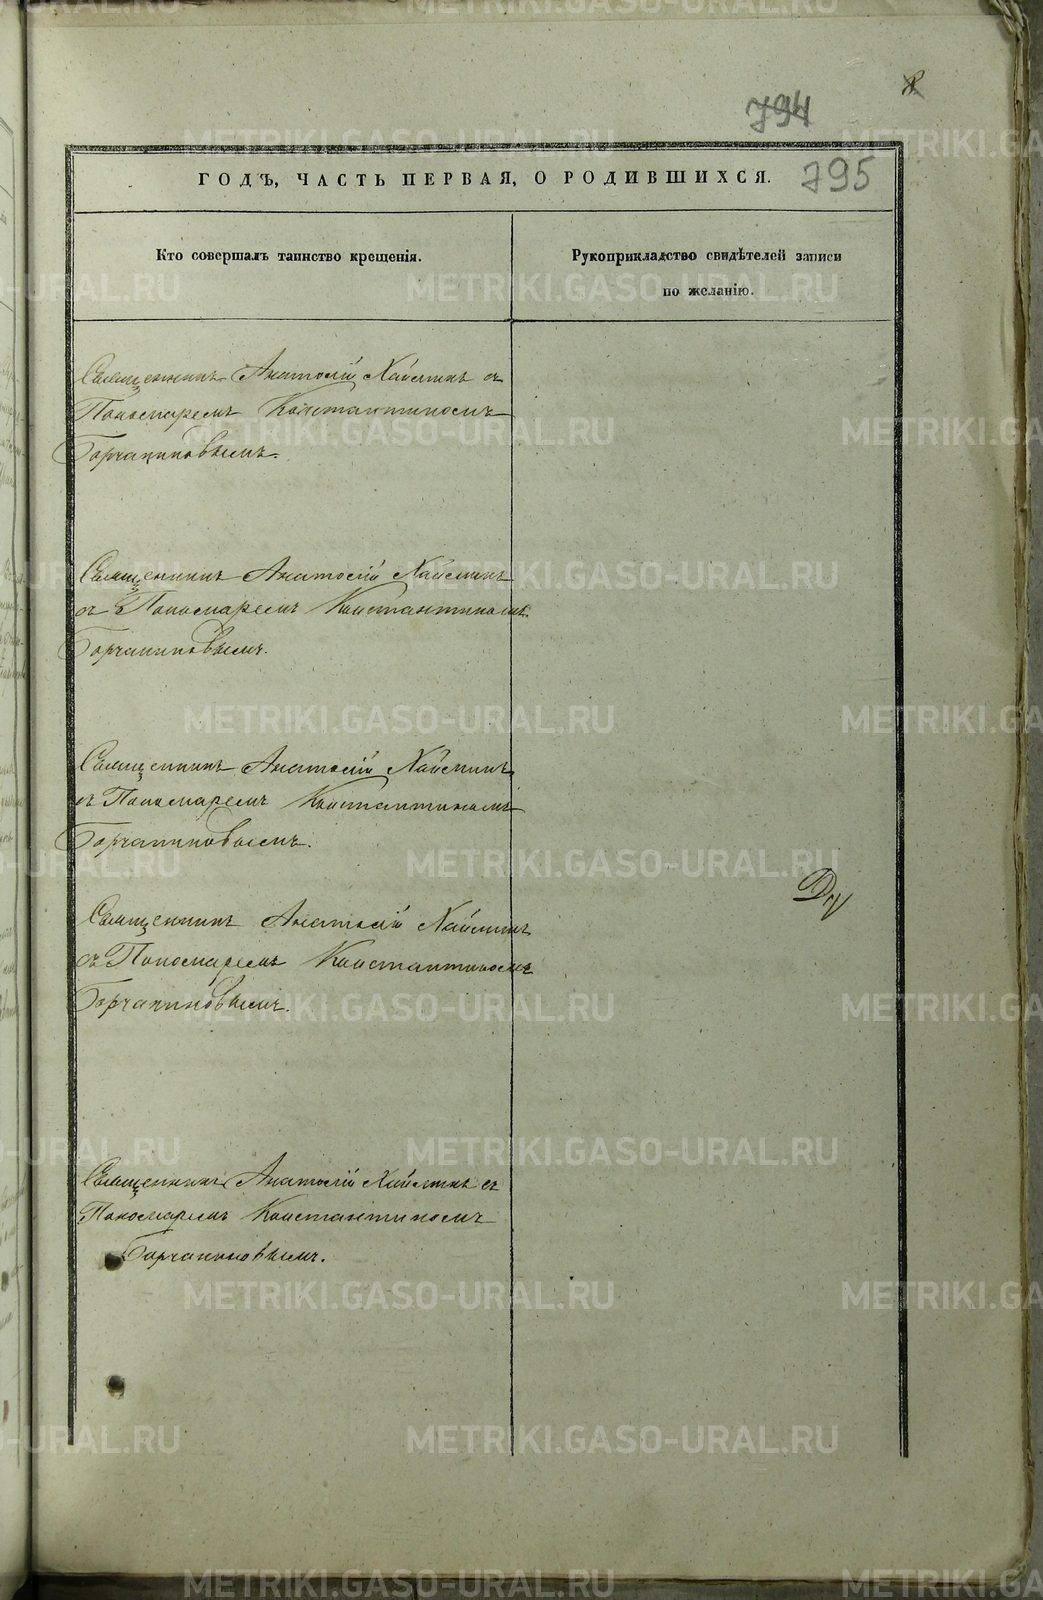 8
794
ГОДЪ, ЧАСТЬ ПЕРВАЯ, О РОДИВШИХСЯ. 795
Кто совершалъ таинство крещенія.
Рукоприкладство свидѣтелей записи
по желанію.
Священникъ Анатолій Хайминъ съ
Пономаремъ Константиномъ
Горчаниновымъ.
Священникъ Анатолій Хайминъ
съ Пономаремъ Константиномъ
Горчаниновымъ.
Священникъ Анатолій Хайминъ
съ Пономаремъ Константиномъ
Горчаниновымъ.
Священникъ Анатолій Хайминъ
съ Пономаремъ Константиномъ
Горчаниновымъ.
Священникъ Анатолій Хайминъ съ
Пономаремъ Константиномъ
Горчаниновымъ.
METRIKI.GASO-URAL.RU